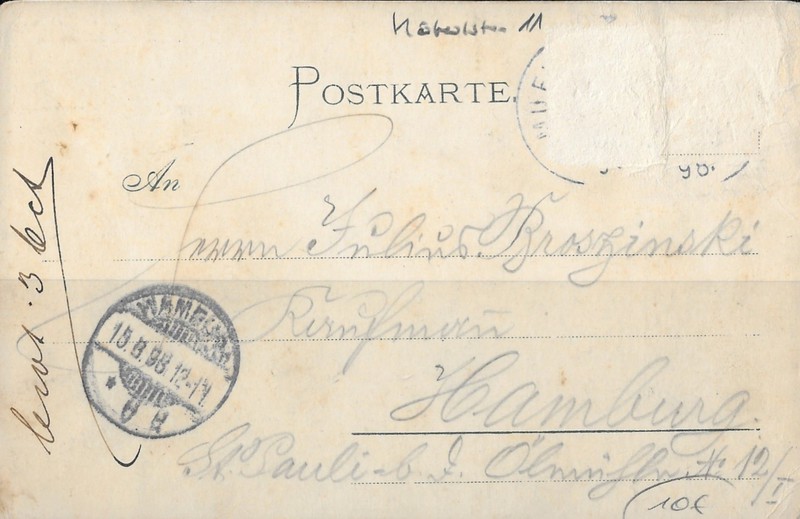 11
POSTKARTE.
An
Herrn Julius Broszinski
Kaufmann
Hamburg.
St. Pauli b. d. Ölmühle № 12/I
HAMBURG
15.8.98.12-1N.
* A A
10€